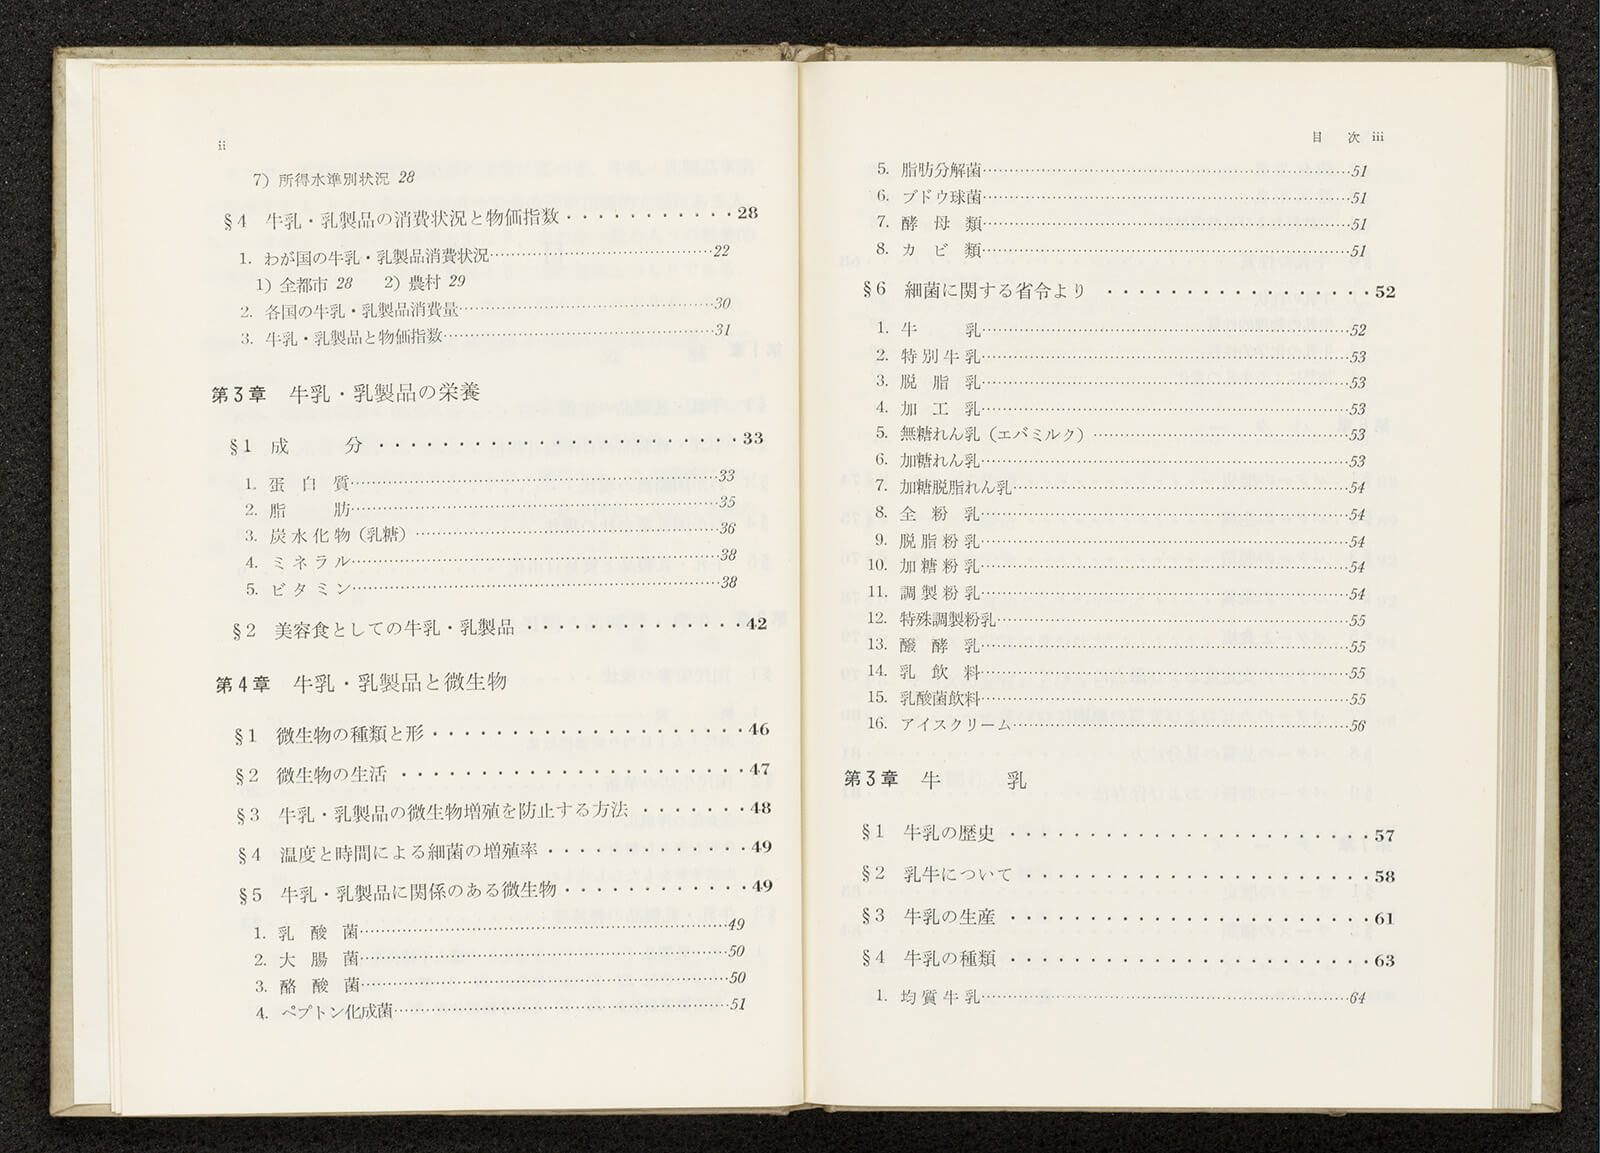 ii
7) 所得水準別状況 28
§4 牛乳・乳製品の消費状況と物価指数・・・・・・・・・・・28
1. わが国の牛乳・乳製品消費状況……………………………22
1) 全都市 28 2) 農村 29
2. 各国の牛乳・乳製品消費量……………………………30
3. 牛乳・乳製品と物価指数……………………………31
第3章 牛乳・乳製品の栄養
§1 成 分 ・・・・・・・・・・・・・・・・・・・・・・・33
1. 蛋白質……………………………33
2. 脂 肪……………………………35
3. 炭水化物 (乳糖) ……………………………36
4. ミネラル……………………………38
5. ビタミン……………………………38
§2 美容食としての牛乳・乳製品 ・・・・・・・・・・・・・・42
第4章 牛乳・乳製品と微生物
§1 微生物の種類と形・・・・・・・・・・・・・・・・・・・・46
§2 微生物の生活 ・・・・・・・・・・・・・・・・・・・・・・47
§3 牛乳・乳製品の微生物増殖を防止する方法 ・・・・・・・48
§4 温度と時間による細菌の増殖率・・・・・・・・・・・・・49
§5 牛乳・乳製品に関係のある微生物・・・・・・・・・・・・49
1. 乳酸菌……………………………49
2. 大腸菌……………………………50
3. 酪酸菌……………………………50
4. ペプトン化成菌……………………………51
目 次 iii
5. 脂肪分解菌……………………………51
6. ブドウ球菌……………………………51
7. 酵母類……………………………51
8. カビ類……………………………51
§6 細菌に関する省令より ・・・・・・・・・・・・・・・・・52
1. 牛 乳……………………………52
2. 特別牛乳……………………………53
3. 脱脂乳……………………………53
4. 加工乳……………………………53
5. 無糖れん乳 (エバミルク) ……………………………53
6. 加糖れん乳……………………………53
7. 加糖脱脂れん乳……………………………54
8. 全粉乳……………………………54
9. 脱脂粉乳……………………………54
10. 加糖粉乳……………………………54
11. 調製粉乳……………………………54
12. 特殊調製粉乳……………………………55
13. 醱酵乳……………………………55
14. 乳飲料……………………………55
15. 乳酸菌飲料……………………………55
16. アイスクリーム……………………………56
第3章 牛 乳
§1 牛乳の歴史 ・・・・・・・・・・・・・・・・・・・・・・・57
§2 乳牛について・・・・・・・・・・・・・・・・・・・・・・58
§3 牛乳の生産 ・・・・・・・・・・・・・・・・・・・・・・・61
§4 牛乳の種類 ・・・・・・・・・・・・・・・・・・・・・・・63
1. 均質牛乳……………………………64